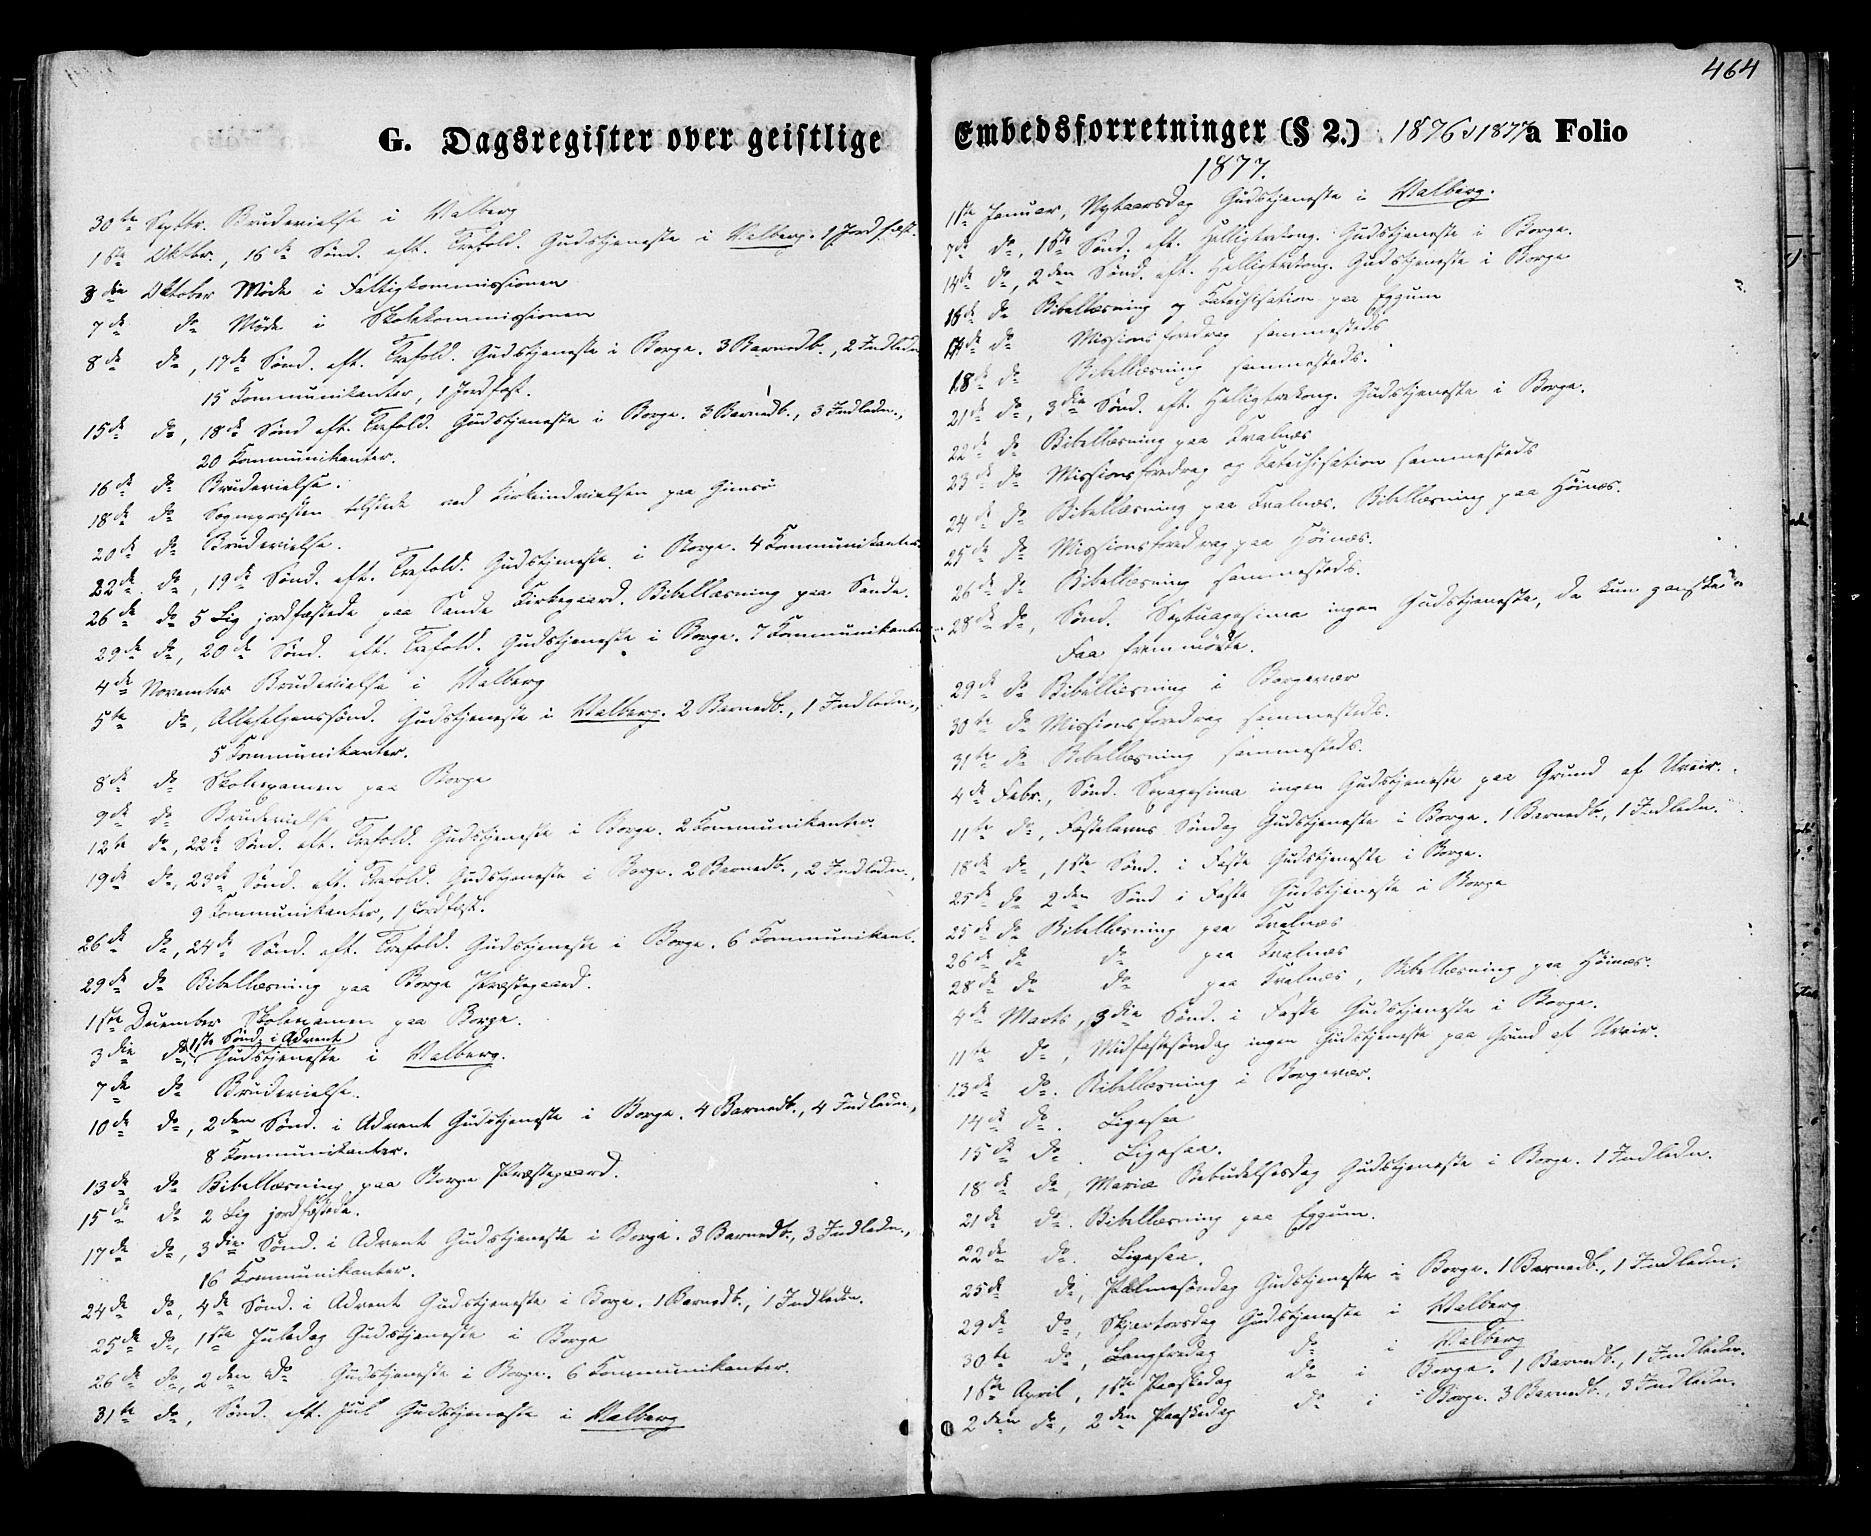 464
G. Dagsregister over geistlige
30te Septbr. Brudevielse i Valberg
1ste Oktbr., 16de Sønd. eft. Trefold. Gudstjeneste i Valberg. 1 Jordfæst.
3die Oktober Møde i Fattigkommissionen
7de do Møde i Skolekommissionen
8de do, 17de Sønd. eft. Trefold. Gudstjeneste i Borge. 3 Barnedb., 2 Indledn.
15 Kommunikanter, 1 Jordfæst.
15de do, 18de Sønd eft. Trefold. Gudstjeneste i Borge. 3 Barnedb., 3 Indledn.,
20 Kommunikanter.
16de do Brudevielse.
18de do Sognepræsten tilstede ved Kirkeindvielsen paa Gimsø
20de do Brudevielse.
22de do, 19de Sønd. eft. Trefold. Gudstjeneste i Borge. 4 Kommunikanter.
26de do 5 Lig jordfæstede paa Sande Kirkegaard. Bibellæsning paa Sande.
29de do, 20de Sønd. eft. Trefold. Gudstjeneste i Borge. 7 Kommunikanter
4de November Brudevielse i Valberg
5te do, Allehelgenssønd. Gudstjeneste i Valberg. 2 Barnedb., 1 Indledn.,
5 Kommunikanter.
8de do Skoleexamen paa Borge
9de do Brudevielse
12te do, 22de Sønd. eft. Trefold. Gudstjeneste i Borge. 2 Kommunikanter.
19de do, 23de Sønd. eft. Trefold. Gudstjeneste i Borge. 2 Barnedb., 2 Indledn.,
9 Kommunikanter, 1 Jordfæst.
26de do, 24de Sønd. eft. Trefold. Gudstjeneste i Borge. 6 Kommunikant.
29de do Bibellæsning paa Borge Præstegaard.
1ste December Skoleexamen paa Borge.
3die do, 1ste Sønd. i Advent Gudstjeneste i Valberg.
7de do Brudevielse.
10de do, 2den Sønd. i Advent Gudstjeneste i Borge. 4 Barnedb., 4 Indledn.,
8 Kommunikanter.
13de do Bibellæsning paa Borge Præstegaard.
15de do 2 Lig jordfæstede.
17de do, 3die Sønd. i Advent Gudstjeneste i Borge. 3 Barnedb., 3 Indledn.,
16 Kommunikanter.
24de do, 4de Sønd. i Advent Gudstjeneste i Borge. 1 Barnedb., 1 Indledn.
25de do, 1ste Juledag Gudstjeneste i Borge
26de do, 2den do Gudstjeneste i Borge. 6 Kommunikanter.
31te do, Sønd. eft. Jul Gudstjeneste i Valberg
Embedsforretninger (§ 2.) 1876 & 1877 a Folio
1877.
1ste Januar, Nytaarsdag Gudstjeneste i Valberg.
7de do, 1ste Sønd. eft. Helligtrekong. Gudstjeneste i Borge.
14de do, 2den Sønd. eft. Helligtrekong. Gudstjeneste i Borge
16de do Bibellæsning og Katechisation paa Eggum
17de do Missionsforedrag sammesteds
18de do Bibellæsning sammesteds.
21de do, 3die Sønd. eft. Helligtrekong. Gudstjeneste i Borge.
22de do Bibellæsning paa Kvalnæs
23de do Missionsforedrag og Katechisation sammesteds
24de do Bibellæsning paa Kvalnæs. Bibellæsning paa Høinæs.
25de do Missionsforedrag paa Høinæs.
26de do Bibellæsning sammesteds.
28de do, Sønd. Septuagesima ingen Gudstjeneste, da kun ganske
Faa fremmødte.
29de do Bibellæsning i Borgevær
30te do Missionsforedrag sammesteds.
31te do Bibellæsning sammesteds.
4de Febr., Sønd. Sexagesima ingen Gudstjeneste paa Grund af Uveir.
11te do, Fastelavns Søndag Gudstjeneste i Borge. 1 Barnedb., 1 Indledn.
18de do, 1ste Sønd. i Faste Gudstjeneste i Borge.
25de do 2den Sønd i Faste Gudstjeneste i Borge
25de do Bibellæsning paa Kvalnæs
26de do do paa Kvalnæs
28de do do paa Kvalnæs, Bibellæsning paa Høinæs.
4de Marts, 3die Sønd. i Faste Gudstjeneste i Borge.
11te do, Midfastesøndag ingen Gudstjeneste paa Grund af Uveir.
13de do. Bibellæsning i Borgevær.
14de do. Ligesaa
15de do. Ligesaa.
18de do, Mariæ Bebudelsesdag Gudstjeneste i Borge. 1 Indledn.
21de do. Bibellæsning paa Eggum.
22de do. Ligesaa.
25de do, Palmesøndag Gudstjeneste i Borge. 1 Barnedb., 1 Indledn.
29de do, Skjærtorsdag Gudstjeneste i Valberg
30te do, Langfredag do i Valberg
1ste April, 1ste Paaskedag do i Borge. 1 Barnedb., 1 Indledn.
2den do, 2den Paaskedag do i Borge. 3 Barnedb., 3 Indledn.